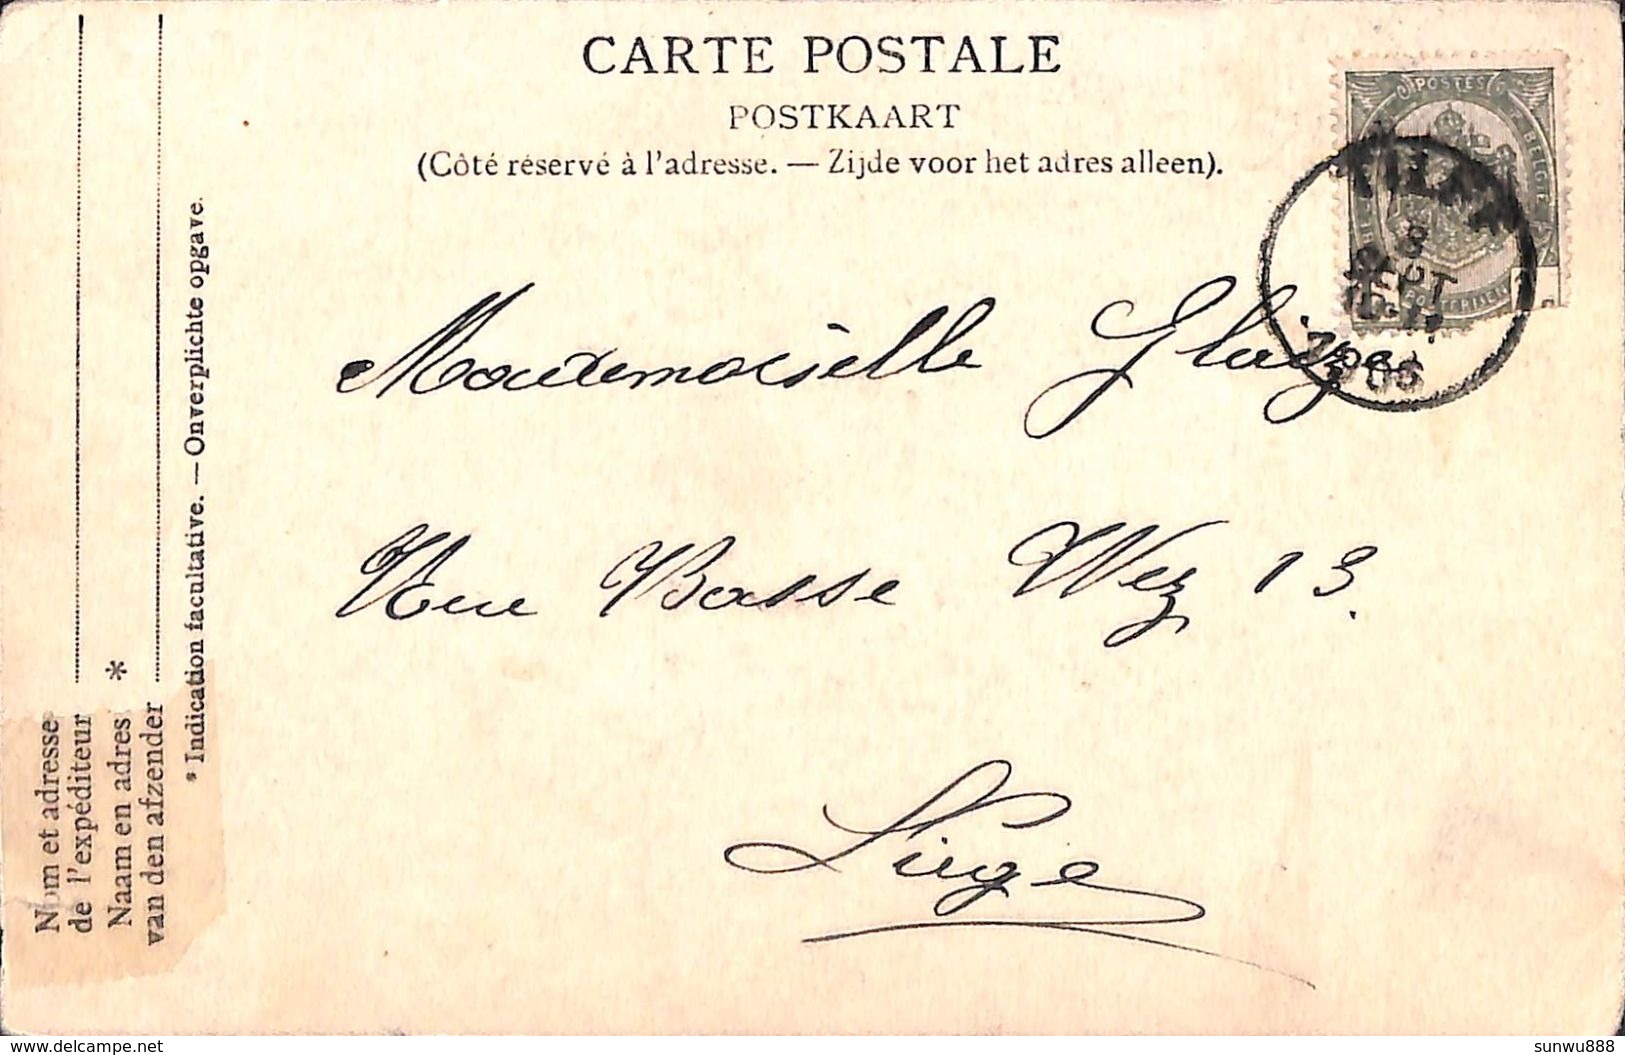 CARTE POSTALE
POSTKAART
(Côté réservé à l'adresse. — Zijde voor het adres alleen).
POSTES
BELGIE
TILFF
8
SEPT
Mademoiselle Glaize
Rue Basse Wez 13.
Liége
Nom et adresse
de l'expéditeur
Naam en adres *
van den afzender
* Indication facultative. — Onverplichte opgave.
www.delcampe.net
sunwu888